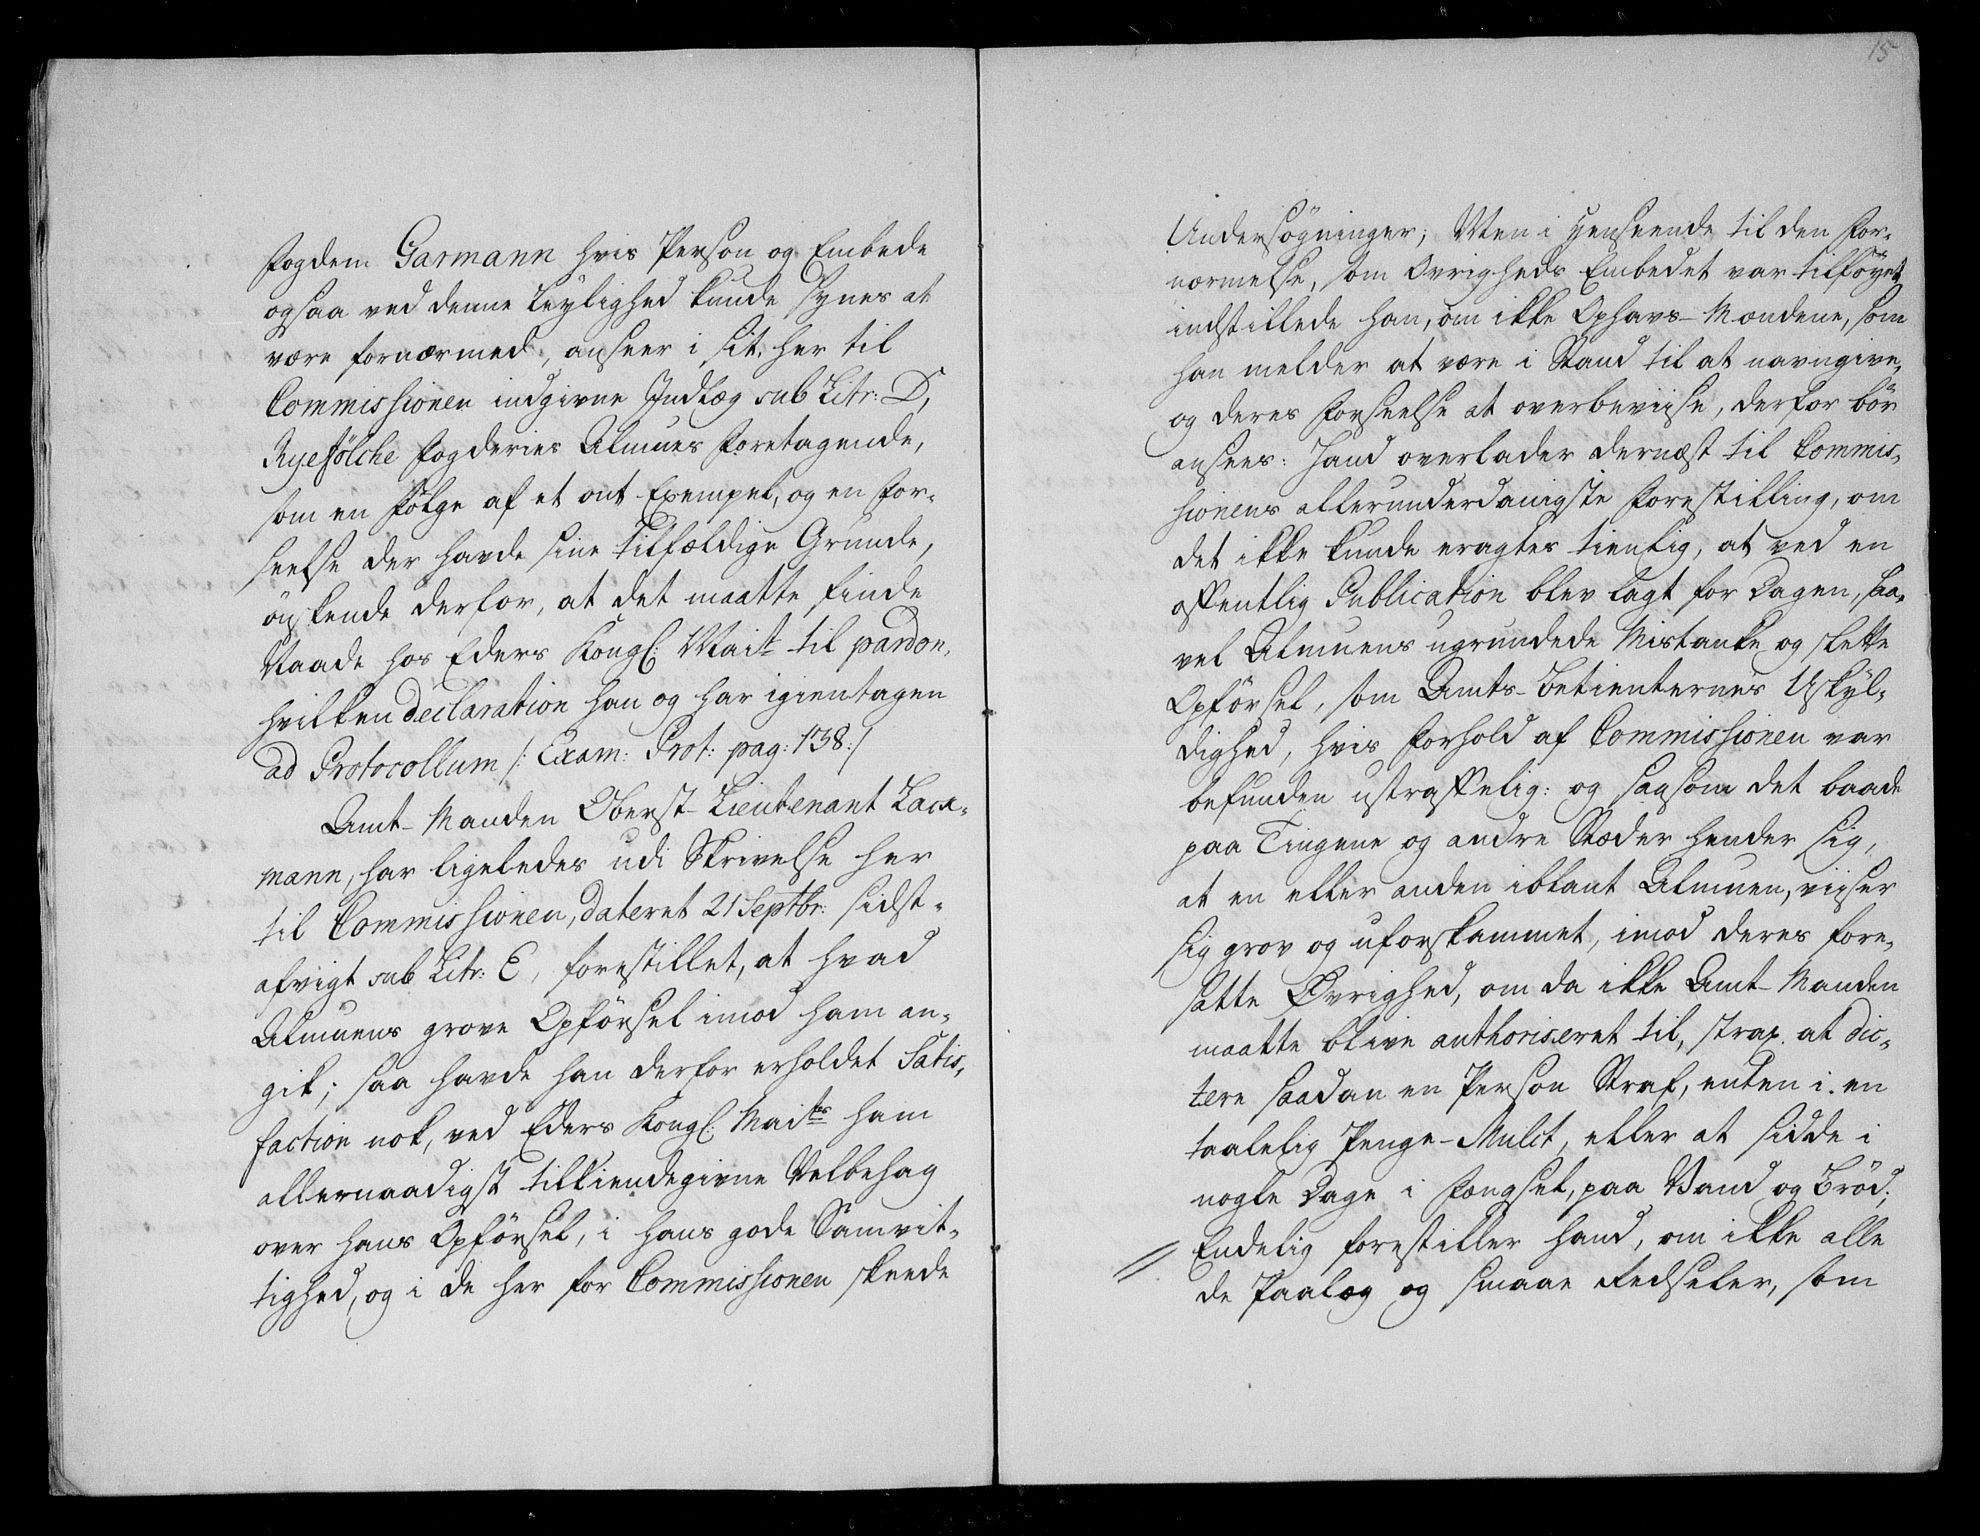 Fogden Garmann hvis Person og Embede
ogsaa ved denne Leylighed kunde synes at
være fornærmed, anseer i sit her til
Commissionen indgivne Indlæg sub Litr: D,
Ryefölche Fogderies Almues Foretagende,
som en Fölge af et ont Exempel, og en For-
seelse der havde sine tilfældige Grunde,
önskende derfor, at det maatte finde
Naade hos Eders Kongl: Mait til pardon,
hvilken declaration han og har igientagen
ad Protocollum /: Exam: Prot: pag: 138:/
Amt-Manden Oberst-Lieutenant Lach-
mann, har ligeledes udi Skrivelse her
til Commissionen, dateret 21 Septbr: sidst-
afvigt sub Litr: E, forestillet, at hvad
Almuens grove Opförsel imod ham an-
gik; saa havde han derfor erholdet Satis-
faction nok, ved Eders Kongl: Maits ham
allernaadigst tilkiendegivne Velbehag
over hans Opförsel, i hans gode Samvit-
tighed, og i de her for Commissionen skeede
15
Undersögninger; Men i Henseende til den For-
nærmelse, som Övrigheds Embedet var tilföyet
indstillede han, om ikke Ophavs-Mændene, som
han melder at være i Stand til at navngive,
og deres Forseelse at overbeviise, derfor bör
ansees: Hand overlader dernæst til Commis-
sionens allerunderdanigste Forestilling, om
det ikke kunde eragtes tienlig, at ved en
offentlig Publication blev lagt for Dagen, saa-
vel Almuens ugrundede Mistanke og slette
Opförsel, som Amts-Betienternes Uskyl-
dighed, hvis Forhold af Commissionen var
befunden ustraffelig: og saasom det baade
paa Tingene og andre Stæder hender sig,
at en eller anden iblant Almuen, viiser
sig grov og uforskammet, imod deres fore-
satte Övrighed, om da ikke Amt-Manden
maatte blive authoriseret til, strax at dic-
tere saadan en Person Straf, enten i en
taalelig Penge-Mulct, eller at sidde i
nogle Dage i Fængsel, paa Vand og Bröd;
Endelig forestiller hand, om ikke alle
de Paalæg og smaae Redseler, som